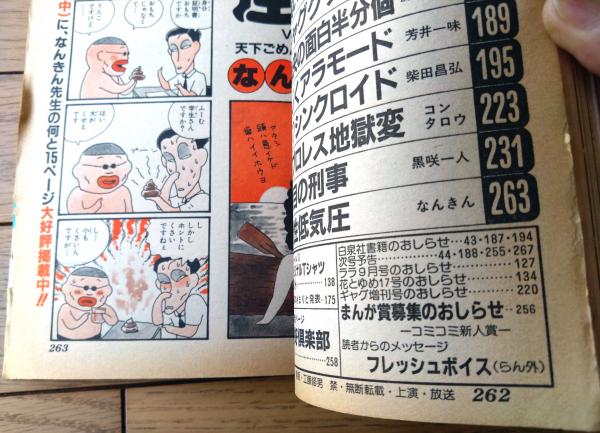 中)に、なんきん先生の何と15ページ大好評掲載中!!
天下ごめん
なん
アタシ
頭ハ悪イケド
歯ハイイホウヨ
ふーむ
学生さん
ですか?
はい
大が
くせえ
です
しかし
ホントに
くさい
ですねぇ
小も
くさいん
ですが
263
の面白半分個
芳井一味
189
くアラモード
シンクロイド
柴田昌弘
195
ロレス地獄変
コン
タロウ
223
の刑事
黒咲一人
231
低気圧
なんきん
263
ルTシャツ
138
まりと発表・175
倶楽部
258
白泉社書籍のおしらせ…43・187・194
次号予告…44・188・255・267
ララ9月号のおしらせ…127
花とゆめ17号のおしらせ…134
ギャグ増刊号のおしらせ…220
まんが賞募集のおしらせ…256
―コミコミ新人賞―
読者からのメッセージ
フレッシュボイス(らん外)
禁・無断転載・上演・放送
262